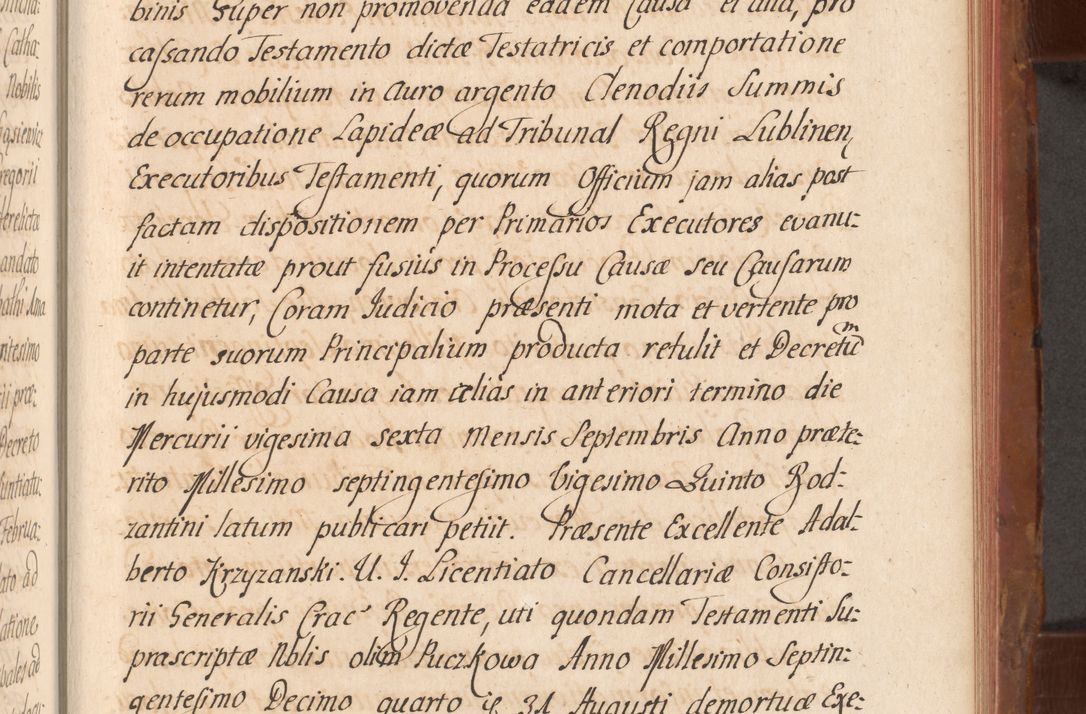 binis Super non promovenda eadem Causa et alia, pro
cassando Testamento dictæ Testatricis et comportatione
rerum mobilium in auro argento Clenodiis Summis
de occupatione Lapideæ ad Tribunal Regni Lublinen
Executoribus Testamenti, quorum Officium jam alias post
factam dispositionem per Primarios Executores evanu:
it intentatæ prout fusius in Processu Causæ seu Causarum
continetur, Coram Judicio præsenti mota et vertente pro
parte suorum Principalium producta retulit et Decretũm
in hujusmodi Causa iam alias in anteriori termino die
Mercurii vigesima sexta Mensis Septembris Anno præte:
rito Millesimo septingentesimo Vigesimo Quinto Rod:
zantini latum publicari petiit. Præsente Excellente Adal:
berto Krzyzanski. U. J. Licentiato Cancellariæ Consisto:
rii Generalis Crac Regente, uti quondam Testamenti Su:
prascriptæ Nblis olim Puczkowa Anno Millesimo Septin:
gentesimo Decimo quarto 31 Augusti demortuæ Exe:
Catha:
Nobilis
Gąsiewicz
regorii
derelicta
andato
ntesimo
ii præ:
Decreto
Februa:
ato ad
latione